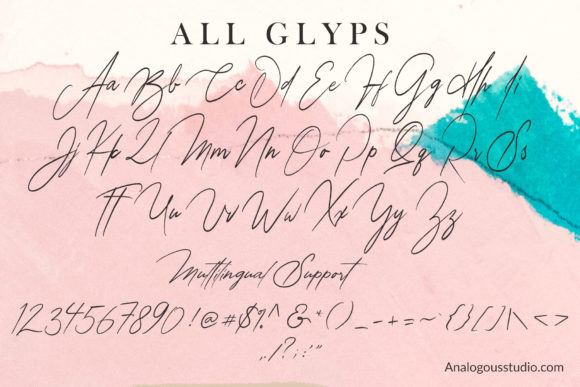 ALL GLYPS
Aa Bb Cc Dd Ee Ff Gg Hh Ii
Jj Kk Ll Mm Nn Oo Pp Qq Rr Ss
Tt Uu Vv Ww Xx Yy Zz
Multilingual Support
1234567890!@#$%^&*()_-+=~{}[]\<>
.,/?;:'"
Analogousstudio.com